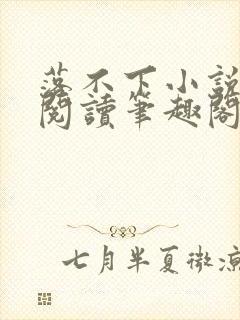 落不下小說
閱讀筆趣閣
七月半夏微涼